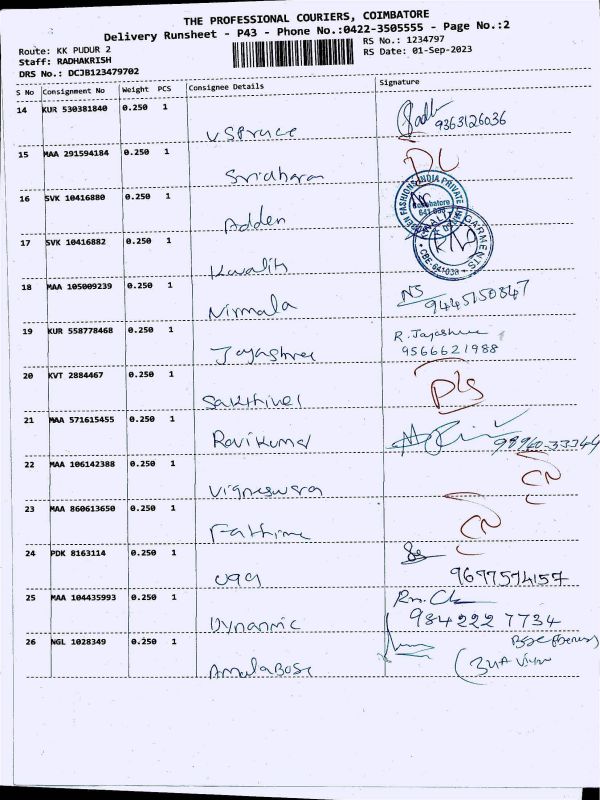 THE PROFESSIONAL COURIERS, COIMBATORE
Delivery Runsheet - P43 - Phone No.:0422-3505555 - Page No.:2
Route: KK PUDUR 2
RS No.: 1234797
Staff: RADHAKRISH
RS Date: 01-Sep-2023
DRS No.: DCJB123479702
S No Consignment No Weight PCS Consignee Details Signature
14 KUR 530381840 0.250 1
V Spruce 9363126036
15 MAA 291594184 0.250 1
Sridharan DL
16 SVK 10416880 0.250 1
Adden
17 SVK 10416882 0.250 1
Kwalith
18 MAA 105009239 0.250 1
Nirmala NS 9445150847
19 KUR 558778468 0.250 1
Jayashree R. Jayashree
9566621988
20 KVT 2884467 0.250 1
Sakthivel D/s
21 MAA 571615455 0.250 1
Ravikumar 99960-33344
22 MAA 106142388 0.250 1
Vigneswara CN
23 MAA 860613650 0.250 1
Fathima CN
24 PDK 8163114 0.250 1
9697574157
25 MAA 104435993 0.250 1
Dynamic 984222 7734
26 NGL 1028349 0.250 1
AmulaBose